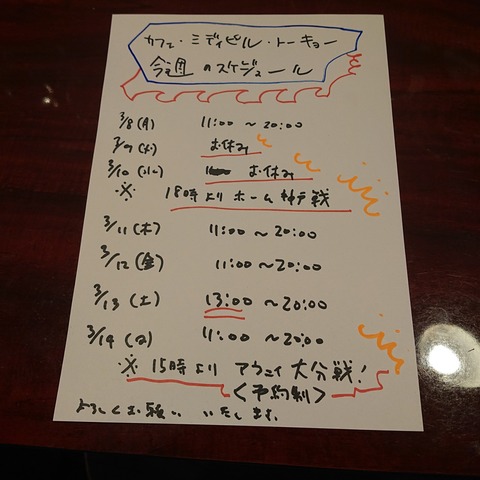 カフェ・ミディピル・トーキョー
今週のスケジュール
3/8(月) 11:00～20:00
3/9(火) お休み
3/10(水) お休み
※ 18時よりホーム神戸戦
3/11(木) 11:00～20:00
3/12(金) 11:00～20:00
3/13(土) 13:00～20:00
3/14(日) 11:00～20:00
※ 15時より アウェイ大分戦!
<予約制>
よろしくお願いいたします。